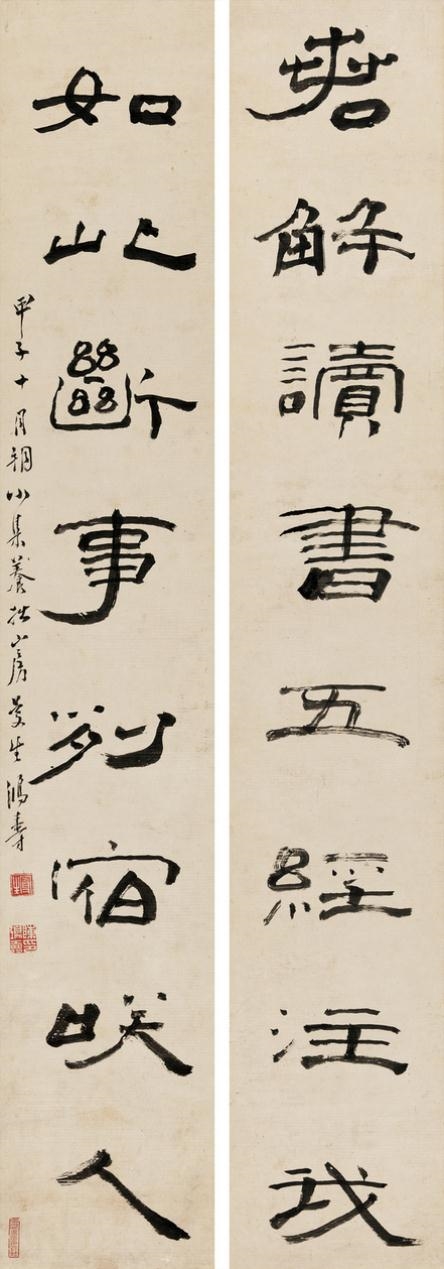 若解讀書五經注我
如此斷事列宿咲人
甲子十月小集養拙山房曼生鴻壽